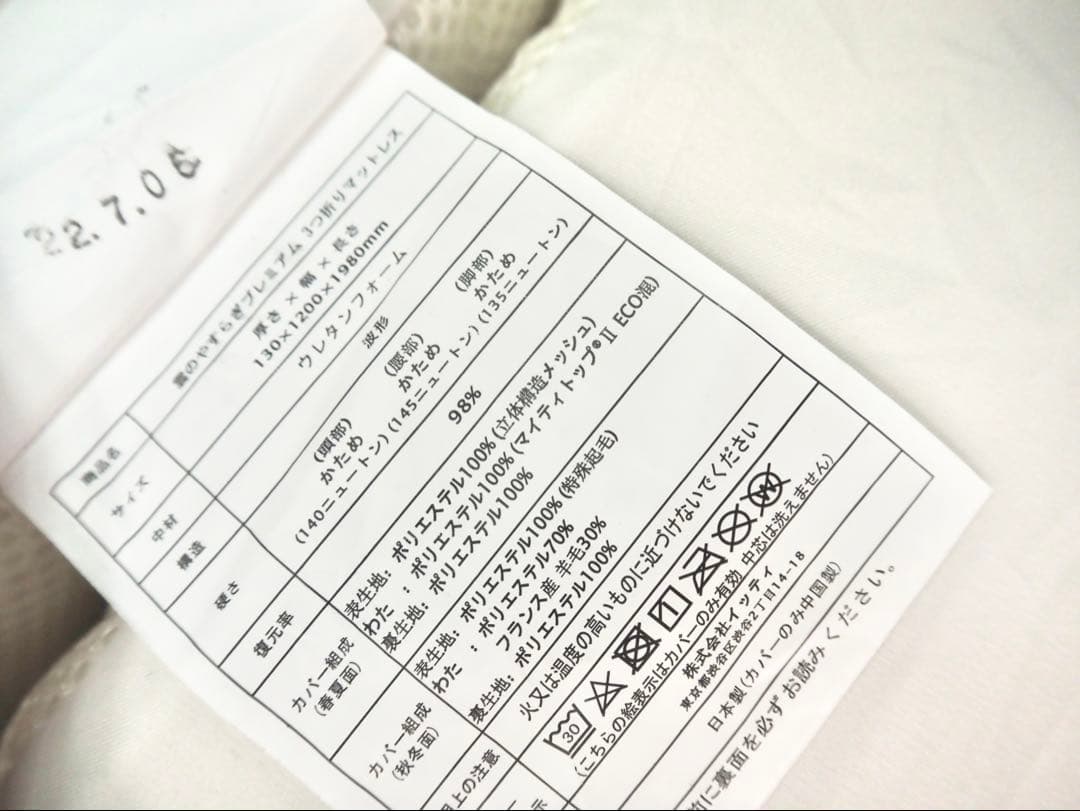 22.7.06
商品名 雲のやすらぎプレミアム 3つ折りマットレス
サイズ 厚さ × 幅 × 長さ
130×1200×1980mm
中材 ウレタンフォーム
構造 波形
硬さ (頭部) (腰部) (脚部)
かため かため かため
(140ニュートン) (145ニュートン) (135ニュートン)
復元率 98%
カバー組成 (春夏面)
表生地: ポリエステル100% (立体構造メッシュ)
わた : ポリエステル100% (マイティトップ®II ECO混)
裏生地: ポリエステル100%
カバー組成 (秋冬面)
表生地: ポリエステル100% (特殊起毛)
わた : ポリエステル70%
フランス産 羊毛30%
裏生地: ポリエステル100%
上の注意 火又は温度の高いものに近づけないでください
示
30
(こちらの絵表示はカバーのみ有効 中芯は洗えません)
株式会社イッティ
東京都渋谷区渋谷2丁目14-18
日本製 (カバーのみ中国製)
前に裏面を必ずお読みください。